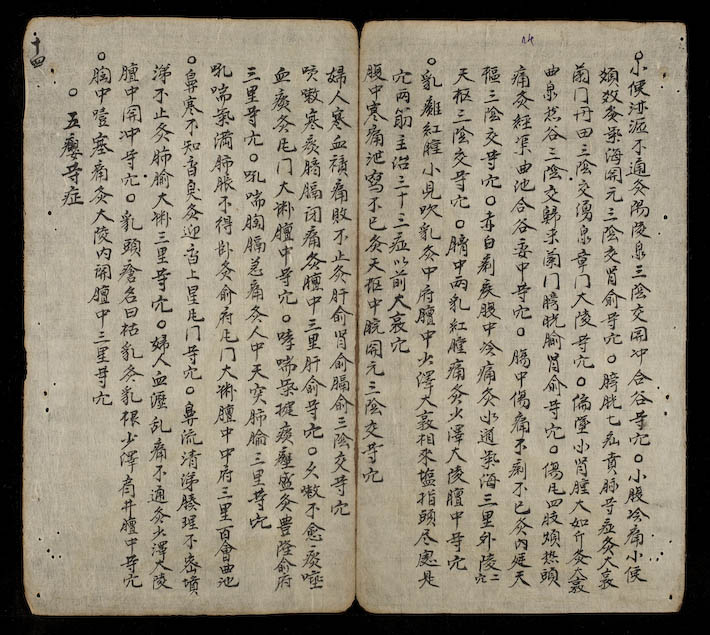 ○小便淋澁不通灸陽陵泉三陰交開冲合谷等穴○小腹冷痛小便
頻数灸氣海関元三陰交腎俞等穴○膀胱七疝賁豚等症灸大敦
蘭門丹田三陰交湧泉章門大陵等穴○偏墜小腎腫大如斤灸大敦
曲泉然谷三陰交歸来蘭門膀胱腧腎俞等穴○傷 四肢煩热頭
痛灸經渠曲池合谷委中等穴○腸中傷痛不痢不已灸内廷天
樞三陰交等穴○赤白痢疾腹中冷痛灸水道氣海三里外陵二穴
天枢三陰交等穴○臍中两乳紅腫痛灸少澤大陵膻中等穴
○乳癰紅腫小見吹乳灸中府膻中少澤大敦相來塩指頭尽處是
穴两筋主治三十三症以前大敦穴
腹中寒痛泄瀉不已灸天枢中脘関元三陰交等穴
婦人寒血積痛敗不止灸肝俞腎俞膈俞三陰交等穴
咳嗽寒痰膈膈闭痛灸膻中三里肝俞等穴○久嗽不愈痰哑
血痰灸 門大 膻中等穴○哮喘氣 痰壅盛灸豊隆俞府
三里等穴○吼喘胸膈急痛灸人中天突肺腧三里等穴
吼喘氣满肺脹不得卧灸俞府 門大 膻中中府三里百會曲池
○鼻寒不知香臭灸迎香上星 門等穴○鼻流清涕腠理不密墳
涕不止灸肺腧大 三里等穴○婦人血瀝乱痛不通灸少澤大陵
膻中開冲等穴○乳頭瘡名曰祜乳灸乳根少澤肩井膻中等穴
○胸中噎塞痛灸大陵内関膻中三里等穴
○五癭等症
十四
14